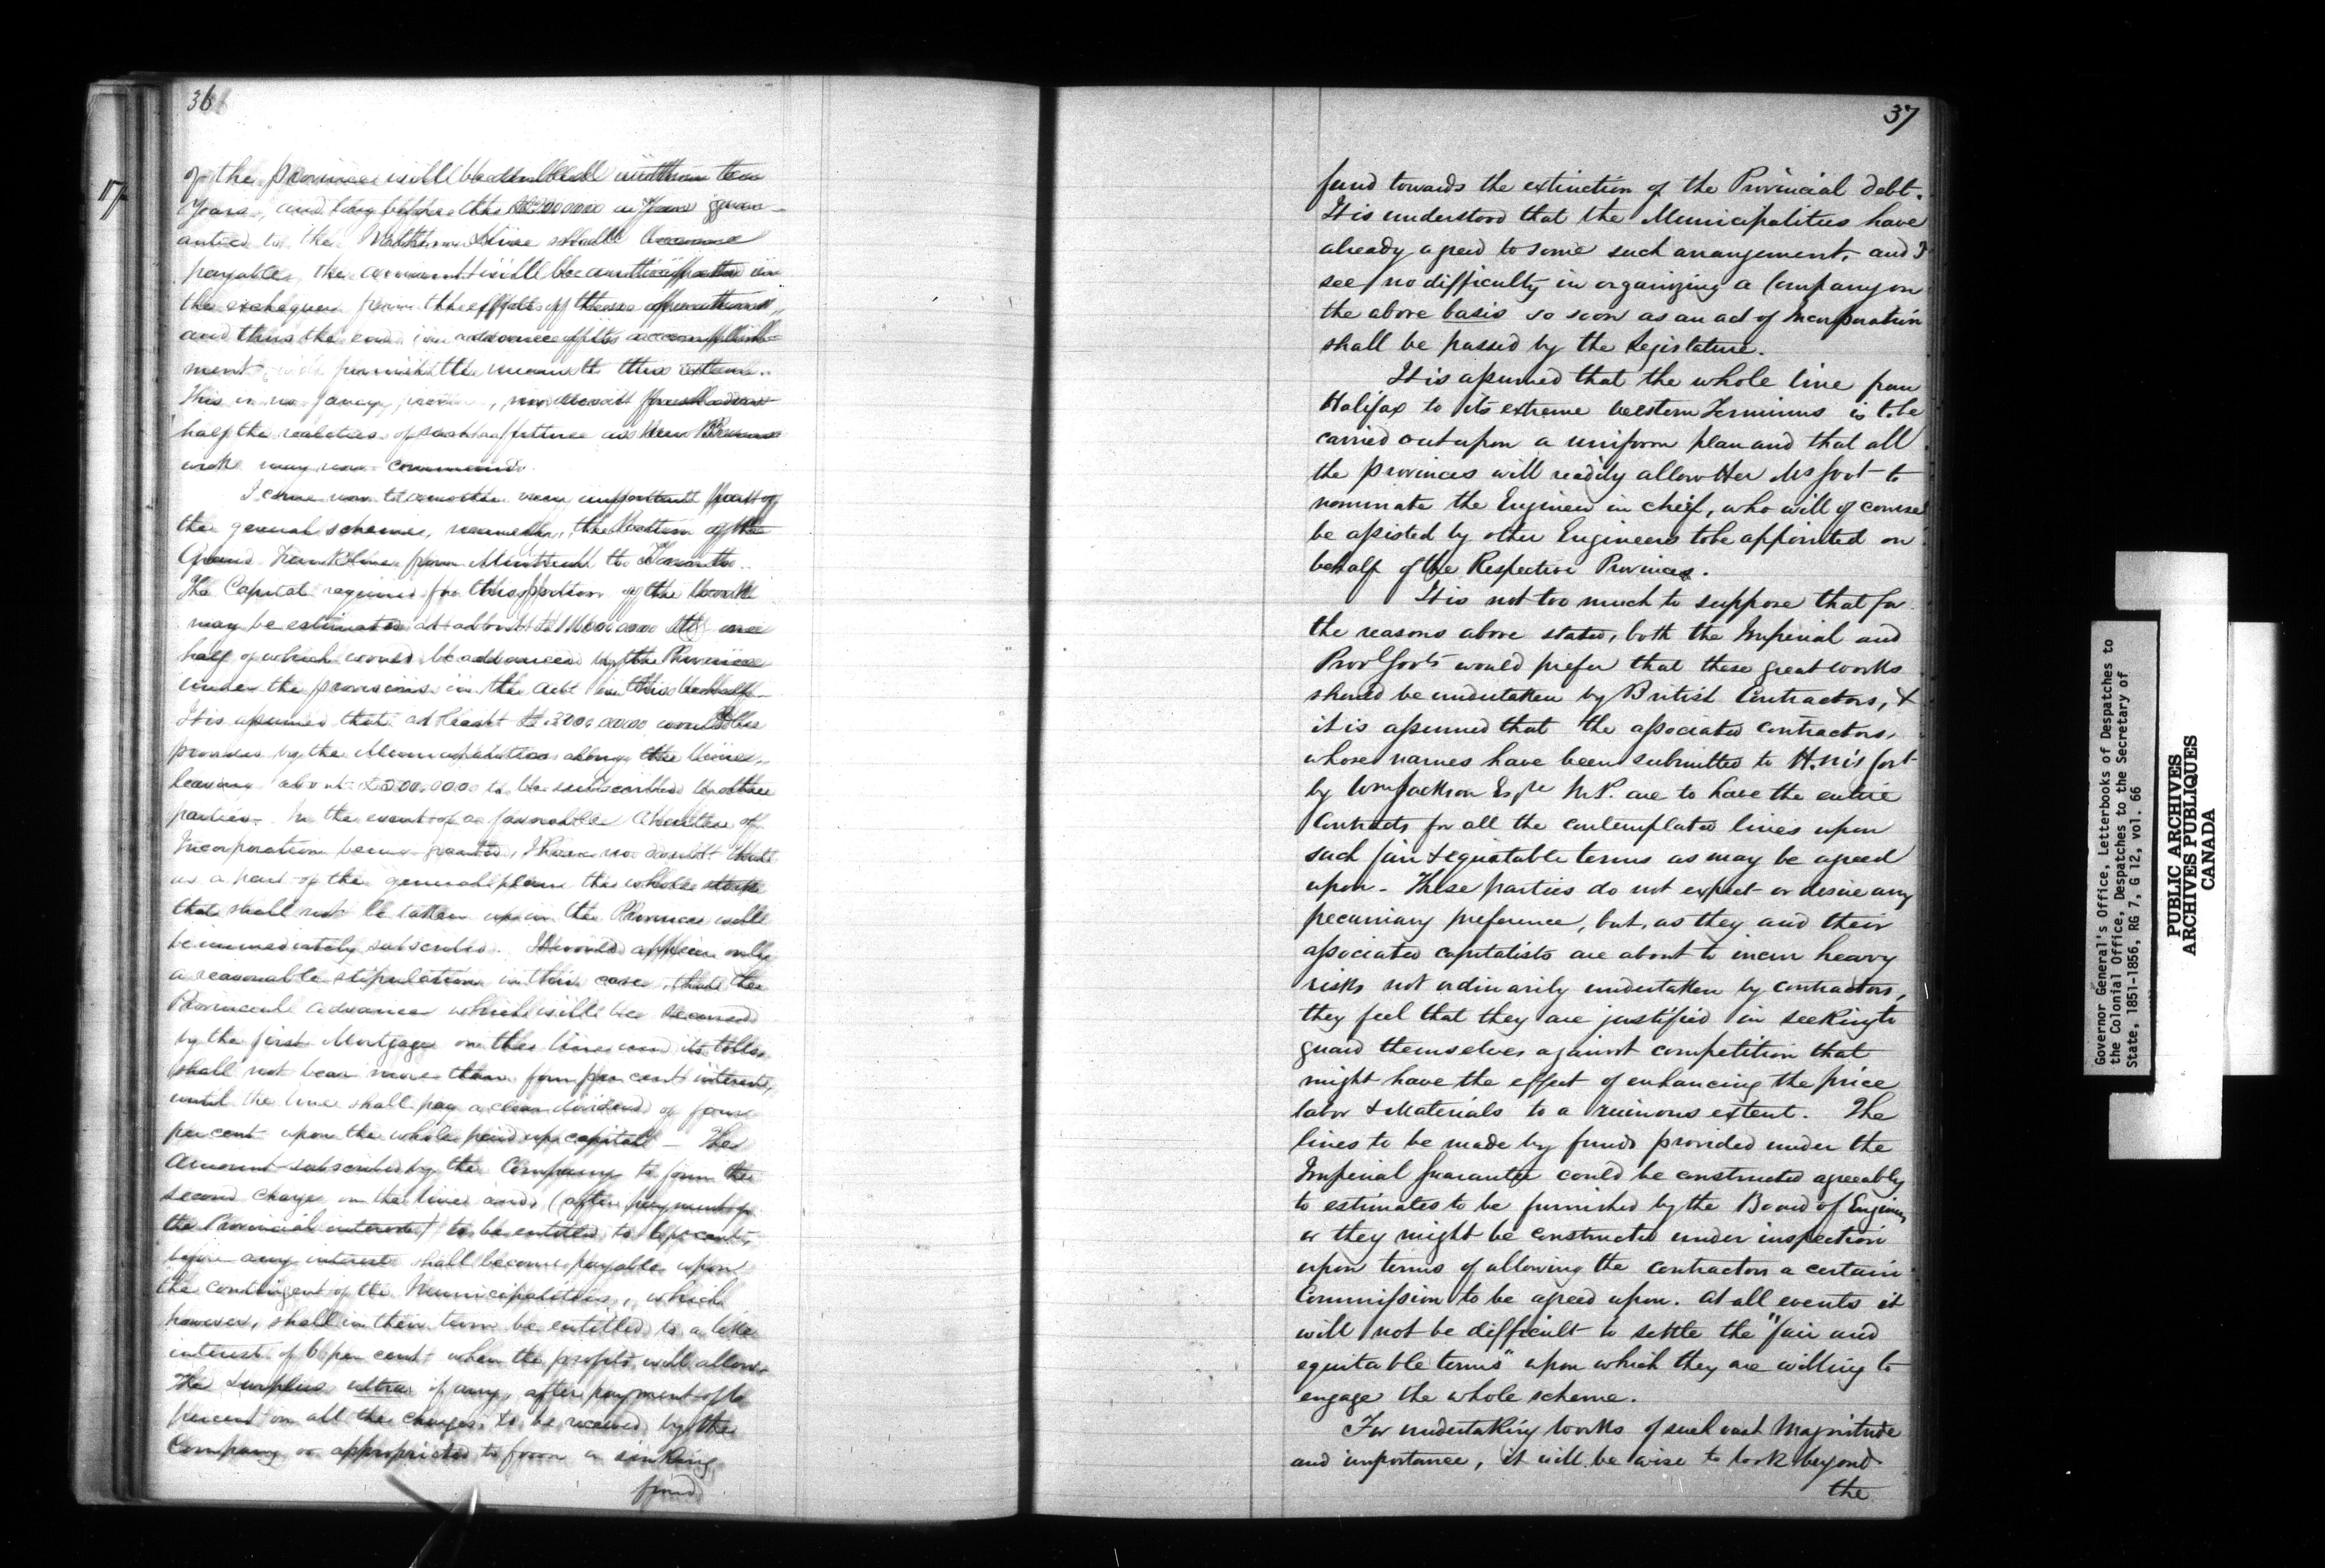 36
of the province will be doubled within ten
years, and long before the guar-
antied to the Northern Line shall become
payable, the amount will be anticipated in
the exchequer from the effects of these operations,
and thus the end in advance of its accomplish-
ment will furnish the means to this extent.
This is no fancy, nor does it foreshadow
half the realities of such a future as New Bruns
wick may now command.
I come now to another very important part of
the general scheme, namely, the section of the
Grand Trunk Line from Montreal to Toronto.
The Capital required for this portion of the work
may be estimated at about one
half of which would be advanced by the Province
under the provisions in the Act in this behalf.
It is assumed that at least would be
provided by the Municipalities along the line,
leaving about £500.000 to be subscribed by other
parties. In the event of a favorable Charter of
Incorporation being granted, I have no doubt that
as a part of the general plan the whole stock
that shall not be taken up in the Province will
be immediately subscribed. It would appear only
a reasonable stipulation in this case, that the
Provincial advance which will be secured
by the first Mortgage on the line and its tolls,
shall not bear more than four per cent interest,
until the line shall pay a clear dividend of four
per cent upon the whole paid up capital — The
Amount subscribed by the Company to form the
second charge on the line and (after payment of
the Provincial interest) to be entitled to 6 pr cent,
before any interest shall become payable upon
the contingent of the Municipalities, which
however, shall in their turn be entitled to a like
interest of 6 per cent when the profits will allow.
The surplus ultra if any, after payment of 6
percent on all the charges to be received by the
Company or appropriated to form a sinking
fund
37
fund towards the extinction of the Provincial debt.
It is understood that the Municipalities have
already agreed to some such arrangement, and I
see no difficulty in organizing a Company on
the above basis so soon as an act of Incorporation
shall be passed by the Legislature.
It is assumed that the whole line from
Halifax to its extreme Western Terminus is to be
carried out upon a uniform plan and that all
the provinces will readily allow Her Ms Govt to
nominate the Engineer in chief, who will of course
be assisted by other Engineers to be appointed on
behalf of the Respective Provinces.
It is not too much to suppose that for
the reasons above stated, both the Imperial and
Provl Govts would prefer that these great works
should be undertaken by British Contractors, &
it is assumed that the associated contractors,
whose names have been submitted to H. M's Govt
by Wm Jackson Esqre M.P. are to have the entire
Contracts for all the contemplated lines upon
such fair & equitable terms as may be agreed
upon - These parties do not expect or desire any
pecuniary preference, but, as they and their
associated capitalists are about to incur heavy
risks not ordinarily undertaken by contractors,
they feel that they are justified in seeking to
guard themselves against competition that
might have the effect of enhancing the price
labor & Materials to a ruinous extent. The
lines to be made by funds provided under the
Imperial Guarantee could be constructed agreeably
to estimates to be furnished by the Board of Engineers
or they might be constructed under inspection
upon terms of allowing the contractors a certain
Commission to be agreed upon. At all events it
will not be difficult to settle the "fair and
equitable terms" upon which they are willing to
engage the whole scheme.
For undertaking works of such vast Magnitude
and importance, it will be wise to look beyond
the
Governor General's Office, Letterbooks of Despatches to
the Colonial Office, Despatches to the Secretary of
State, 1851-1856, RG 7, G 12, vol. 66
PUBLIC ARCHIVES
ARCHIVES PUBLIQUES
CANADA